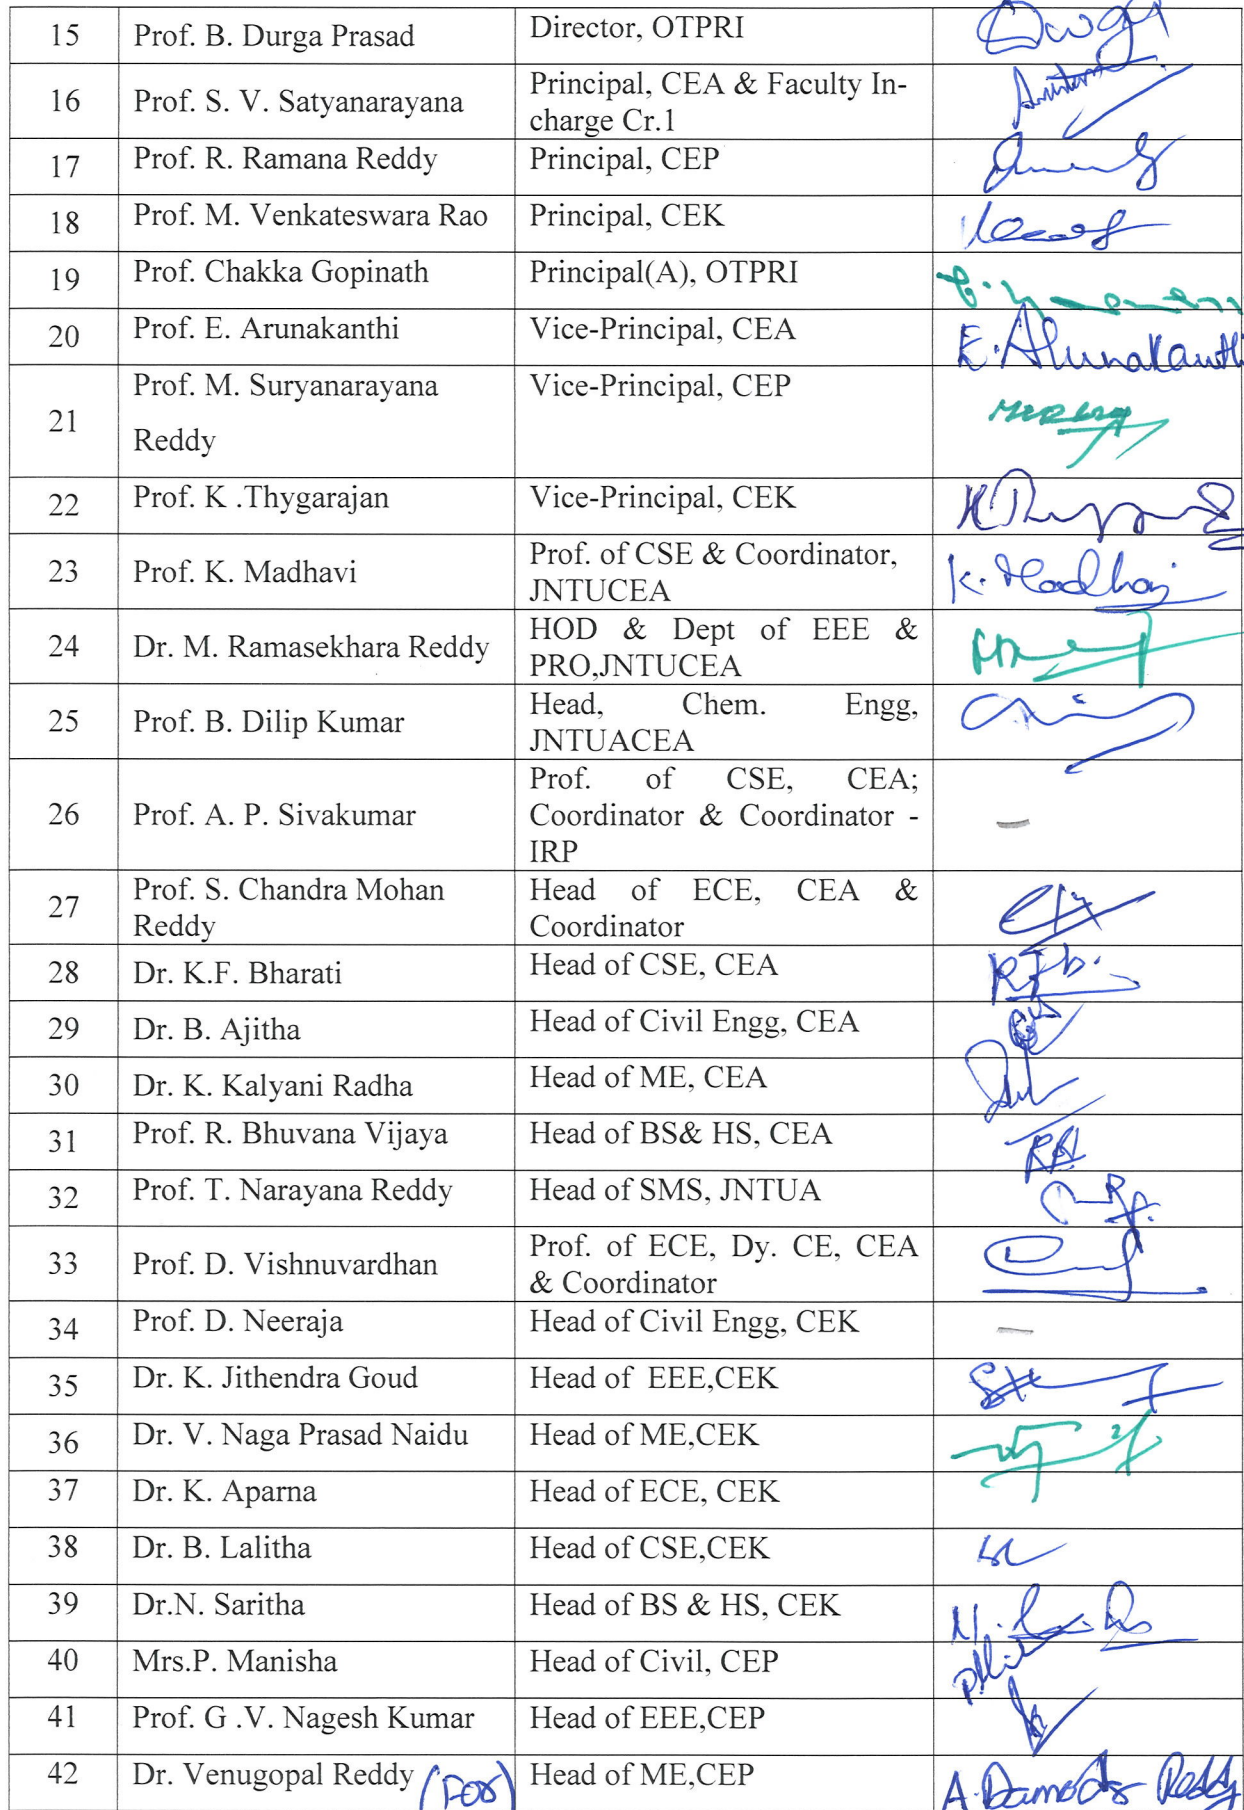 15 Prof. B. Durga Prasad Director, OTPRI Durga
16 Prof. S. V. Satyanarayana Principal, CEA & Faculty In-
charge Cr.1
17 Prof. R. Ramana Reddy Principal, CEP
18 Prof. M. Venkateswara Rao Principal, CEK
19 Prof. Chakka Gopinath Principal(A), OTPRI
20 Prof. E. Arunakanthi Vice-Principal, CEA E. Arunakanthi
21 Prof. M. Suryanarayana Vice-Principal, CEP
Reddy
22 Prof. K .Thygarajan Vice-Principal, CEK
23 Prof. K. Madhavi Prof. of CSE & Coordinator, K. Madhavi
JNTUCEA
24 Dr. M. Ramasekhara Reddy HOD & Dept of EEE &
PRO,JNTUCEA
25 Prof. B. Dilip Kumar Head, Chem. Engg,
JNTUACEA
26 Prof. A. P. Sivakumar Prof. of CSE, CEA;
Coordinator & Coordinator -
IRP
27 Prof. S. Chandra Mohan Head of ECE, CEA &
Reddy Coordinator
28 Dr. K.F. Bharati Head of CSE, CEA
29 Dr. B. Ajitha Head of Civil Engg, CEA
30 Dr. K. Kalyani Radha Head of ME, CEA
31 Prof. R. Bhuvana Vijaya Head of BS& HS, CEA
32 Prof. T. Narayana Reddy Head of SMS, JNTUA
33 Prof. D. Vishnuvardhan Prof. of ECE, Dy. CE, CEA
& Coordinator
34 Prof. D. Neeraja Head of Civil Engg, CEK
35 Dr. K. Jithendra Goud Head of EEE,CEK
36 Dr. V. Naga Prasad Naidu Head of ME,CEK
37 Dr. K. Aparna Head of ECE, CEK
38 Dr. B. Lalitha Head of CSE,CEK
39 Dr.N. Saritha Head of BS & HS, CEK
40 Mrs.P. Manisha Head of Civil, CEP
41 Prof. G .V. Nagesh Kumar Head of EEE,CEP
42 Dr. Venugopal Reddy (For) Head of ME,CEP A. Damodar Reddy